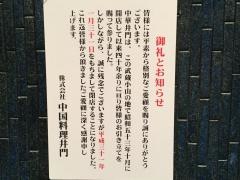 御礼とお知らせ
皆様には平素から格別なご愛顧を賜り誠にありがとう
ございます。
中華井門は、この武蔵小山の地で昭和五十三年十月に
開店して以来四十年余りに亘り皆様のお引き立てを
賜って参りました。
しかしながら、誠に残念でございますが平成三十一年
一月三十一日をもちまして閉店することになりました。
これ迄皆様から頂きましたご愛顧に深く感謝申し
上げます。
株式会社 中国料理井門